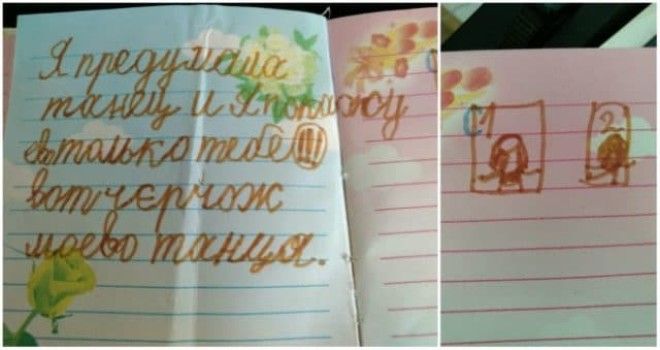 Я предумала
танец и Я
ево только тебе!!!
вот черчож
моево танца.
1
2